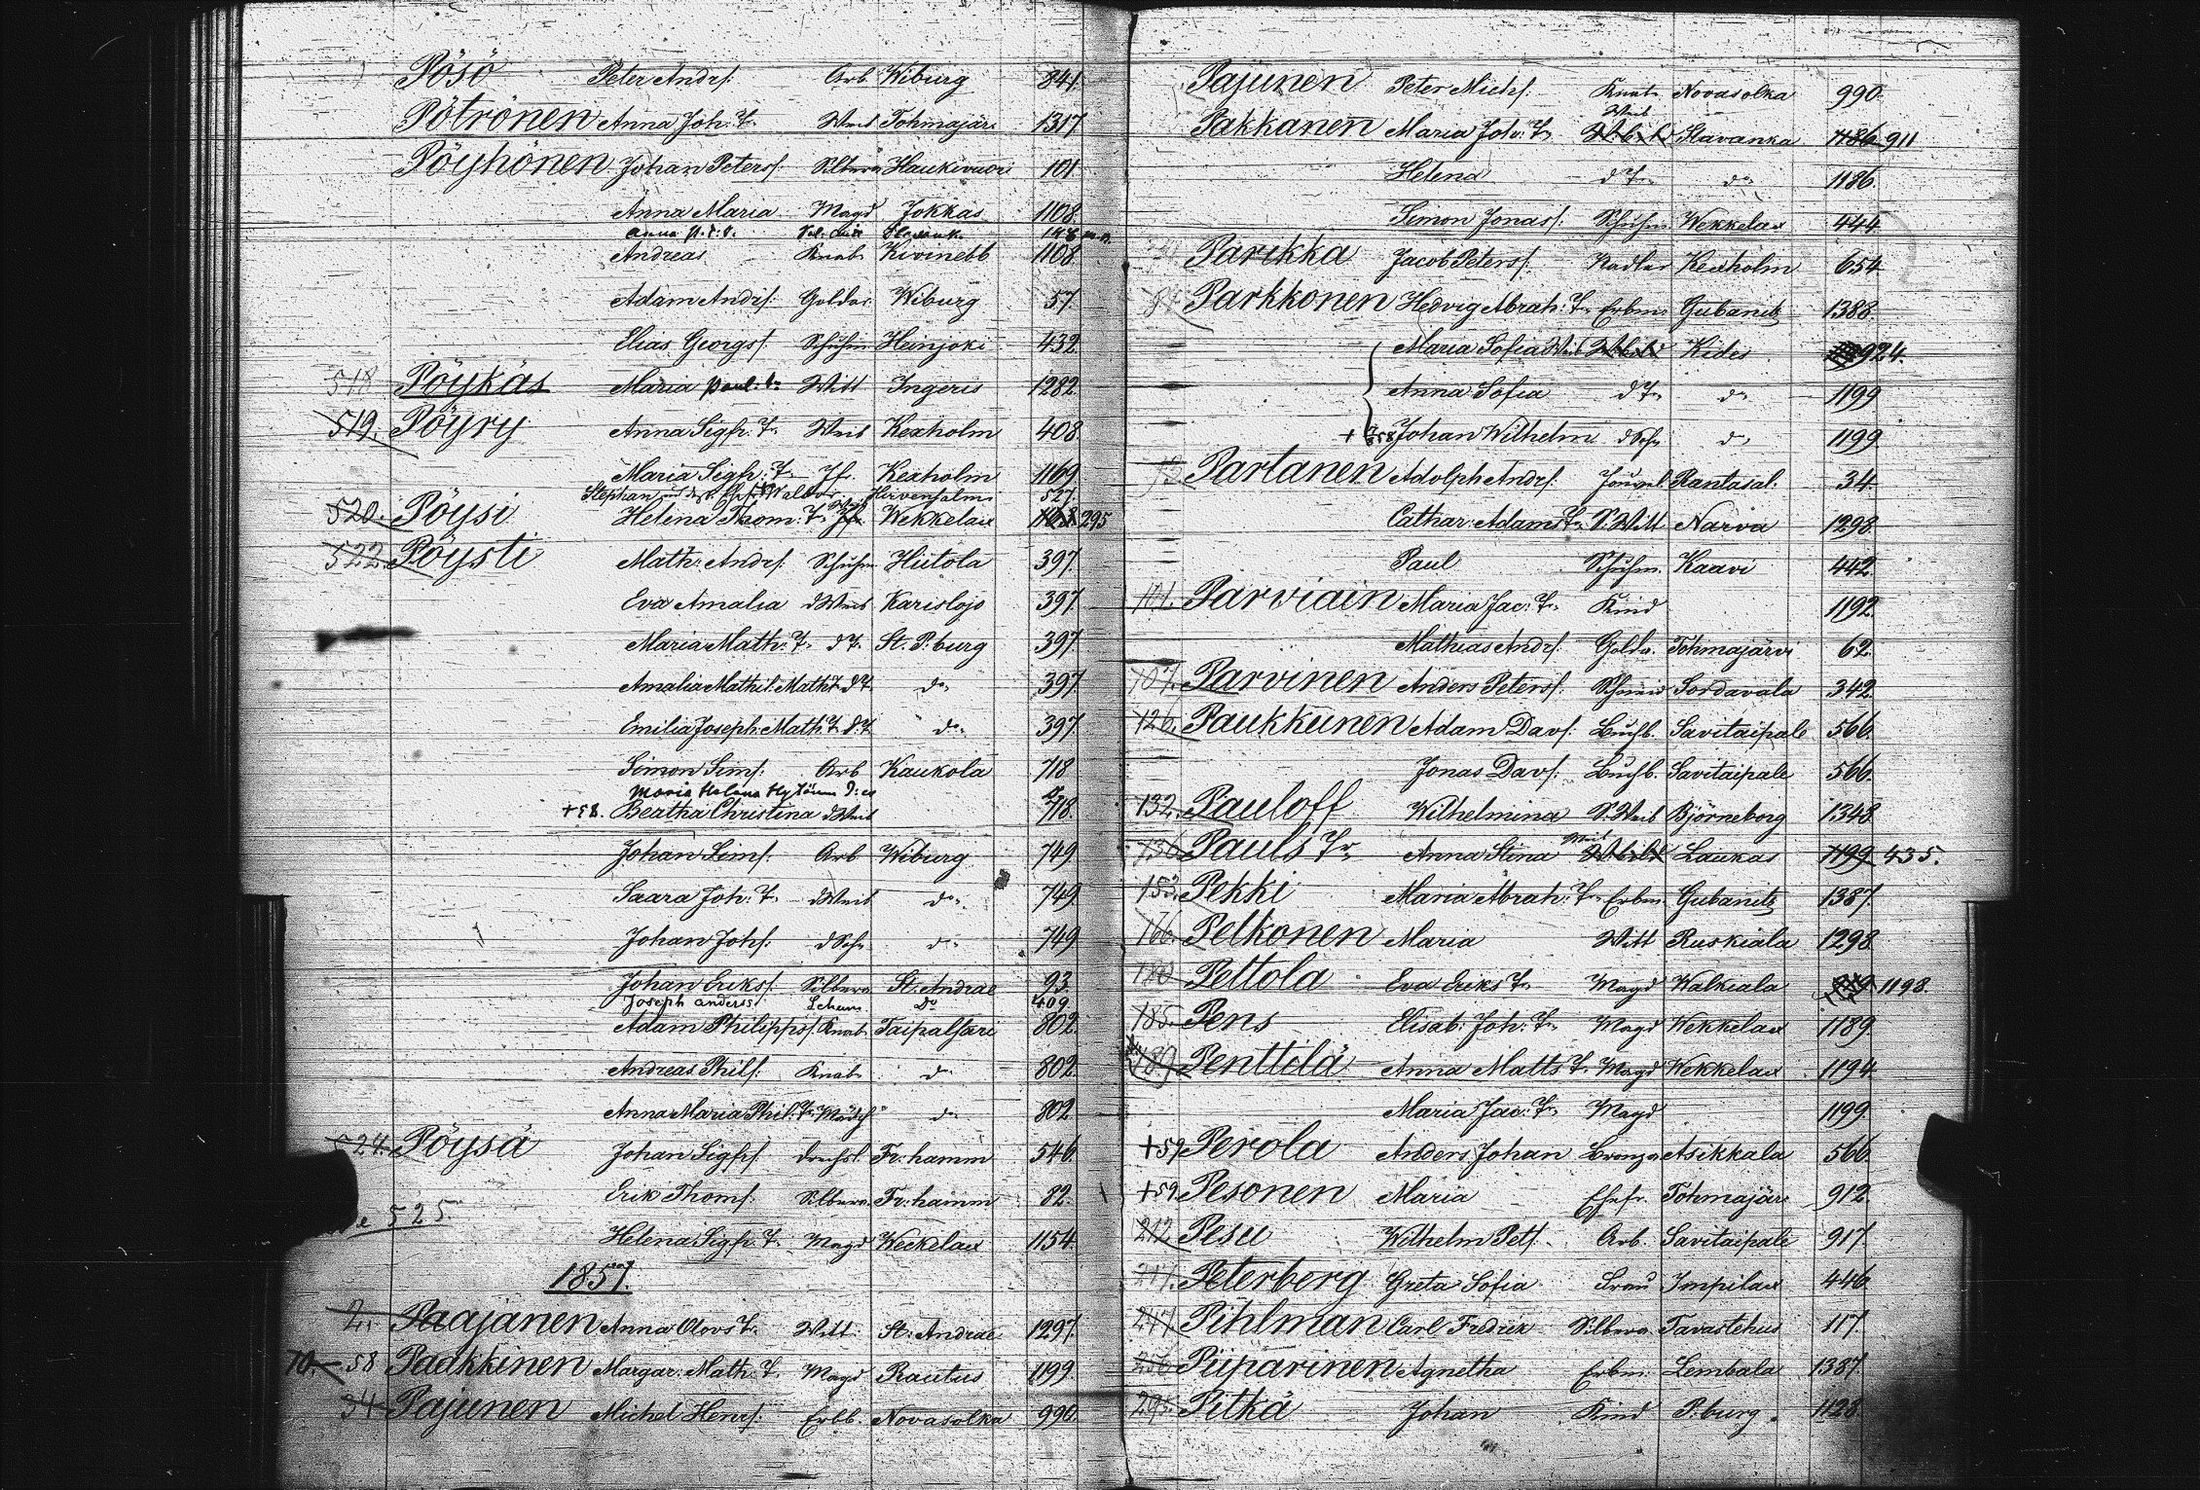 Pösö Peter Andrs: Arb Wiburg 841.
Pötrönen Anna Joh: T. Weib Tohmajär. 1317
Pöyhönen Johan Peters: Silberar Haukivuori 101
Anna Maria Magd Jokkas 1108.
Anna
Andreas Knab. Kivinebb 1108
Adam Andrs: Goldar. Wiburg 57.
Elias Georgs: Schuhm Heinjoki 432
518 Pöykäs Maria Paul: tr Witt Ingeris 1282.
519. Pöyry Anna Sigfr. Tr. Weib Kexholm 408.
Maria Sigfr: T. Jfr. Kexholm 1169
Stephan Hirvensalmi 527.
520. Pöysi Helena Thom: T. Wekkelax 295
522 Pöysti Math: Andrs: Schuhm. Hiitola 397.
Eva Amalia dWeib Karislojo 397.
Maria Math: T. dT. St. P:burg 397
Amalia Mathil: Math: T. dT. do. 397
Emilia Joseph: Math: T. d:T. do. 397.
Simon Sims: Arb Kaukola 718
Maria Helena
+58. Beatha Christina dWeib 718.
Johan Sims: Arb Wiburg 749
Saara Joh: T. dWeib do. 749
Johan Johs: dSohn do. 749
Johan Eriks: Silberar St. Andrae 93.
Joseph anderss: do 409
Adam Philipps: Knab Taipalsari 802.
Andreas Phils: Knab do. 802
Anna Maria Phil: T. Mädch do. 802
524. Pöysä Johan Sigfrs: drechsl. Fr:hamm 546
Erik Thoms: Silberar. Fr:hamm 82.
525.
Helena Sigfr. T. Magd Weckelax 1154.
1857.
2. Paajanen Anna Olovs Tr. Witt: St. Andrae 1297.
10. 58 Paakkinen Margar: Math: T. Magd Rautus 1199.
34 Pajunen Michel Henrs: Erbb. Novasolka 990.
Pajunen Peter Michs: Knab. Novasolka 990.
Pakkanen Maria Joh: Tr. Weib Slavanka 1186 911
Helena dTr. do. 1186.
Simon Jonas: Schuhm Wekkelax 444.
Parikka Jacob Peters: Nadler Kexholm 654
84. Parkkonen Hedvig Abrah: Tr. Erbm: Gubanitz 1388.
Maria Sofia Weib Kides 924.
Anna Sofia dTr. do. 1199
+ 58 Johan Wilhelm dSohn do. 1199
Partanen Adolph Andrs: Rantasal. 34.
Cathar: Adams Tr. S:Witt Narva 1298.
Paul Schuhm. Kaavi 442
101. Parviain Maria Jac: Tr. Kind 1192.
Mathias Andrs: Golda. Tohmajärvi 62.
107. Parvinen Anders Peters: Schmid Sordavala 342.
126. Paukkunen Adam Davs: Buchb. Savitaipale 566.
Jonas Davs: Buchb. Savitaipale 566.
132. Pauloff Wilhelmina S:Weib Björneborg 1348
136. Pauls Tr. Anna Stina Weib Laukas 1199 435.
153. Pekki Maria Abrah: Tr. Erbm Gubanitz 1387.
166. Pelkonen Maria Witt Ruskiala 1298
180 Peltola Eva Eriks Tr. Magd Walkiala 1198.
185. Pens Elisab: Joh: Tr. Magd Wekkelax 1189
189. Penttilä Anna Matts T. Magd Wekkelax 1194
Maria Jac: Tr. Magd 1199.
+59 Perola Anders Johan Bronza. Asikkala 566.
+59. Pesonen Maria Ehefr. Tohmajär. 912.
212 Pesu Wilhelm Pett: Arb. Savitaipale 917.
217. Peterberg Greta Sofia Frau Impilax 446
247. Pihlman Carl Fredrik Silberar. Tavastehus 117.
256. Piiparinen Agnetha Erbm. Lembala 1387.
295. Pitkä Johan Kind P:burg. 1128